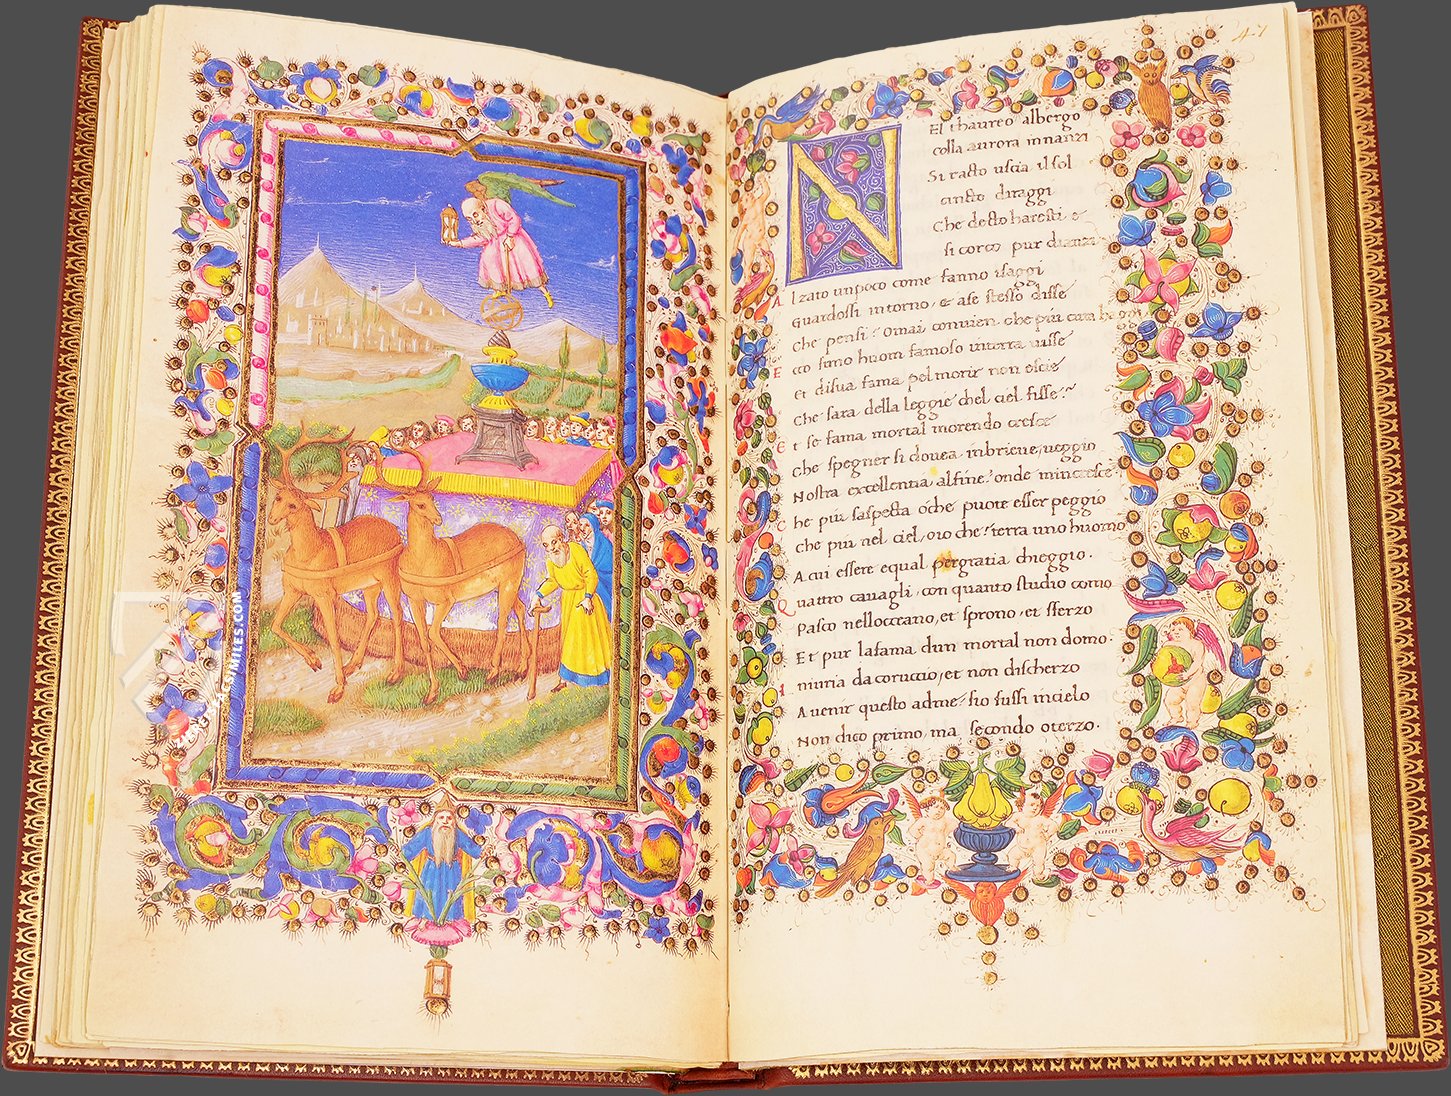 FACSIMILES.COM
47
NEl thaureo albergo
colla aurora innanzi
Si ratto uscia il sol
cinto diraggi
Che detto haresti e
si corco pur dianzi
Alzato unpoco come fanno isaggi
Guardossi intorno, et ase stesso disse
Che pensi? Omai conuien che piu cura haggi
Ecco simo huom famoso interra uisse
Et disua fama pel morir non escie
Che sara della leggie chel ciel fisse
Et se fama mortal morendo cresce
Che spegner si douea inbrieue, ueggio
Nostra excellentia alfine: onde mincresce
Che piu saspecta oche puote esser peggio
Che piu nel ciel, oio che'nterra uno huomo
A cui essere equal pergratia chieggio.
Quattro cauagli, con quanto studio como
Pasco nelloceano, et sprono, et sferzo
Et pur lafama dun mortal non domo.
Iniuria da coruccio, et non discherzo
Auenir questo adme: sio fussi incielo
Non dico primo, ma secondo oterzo.